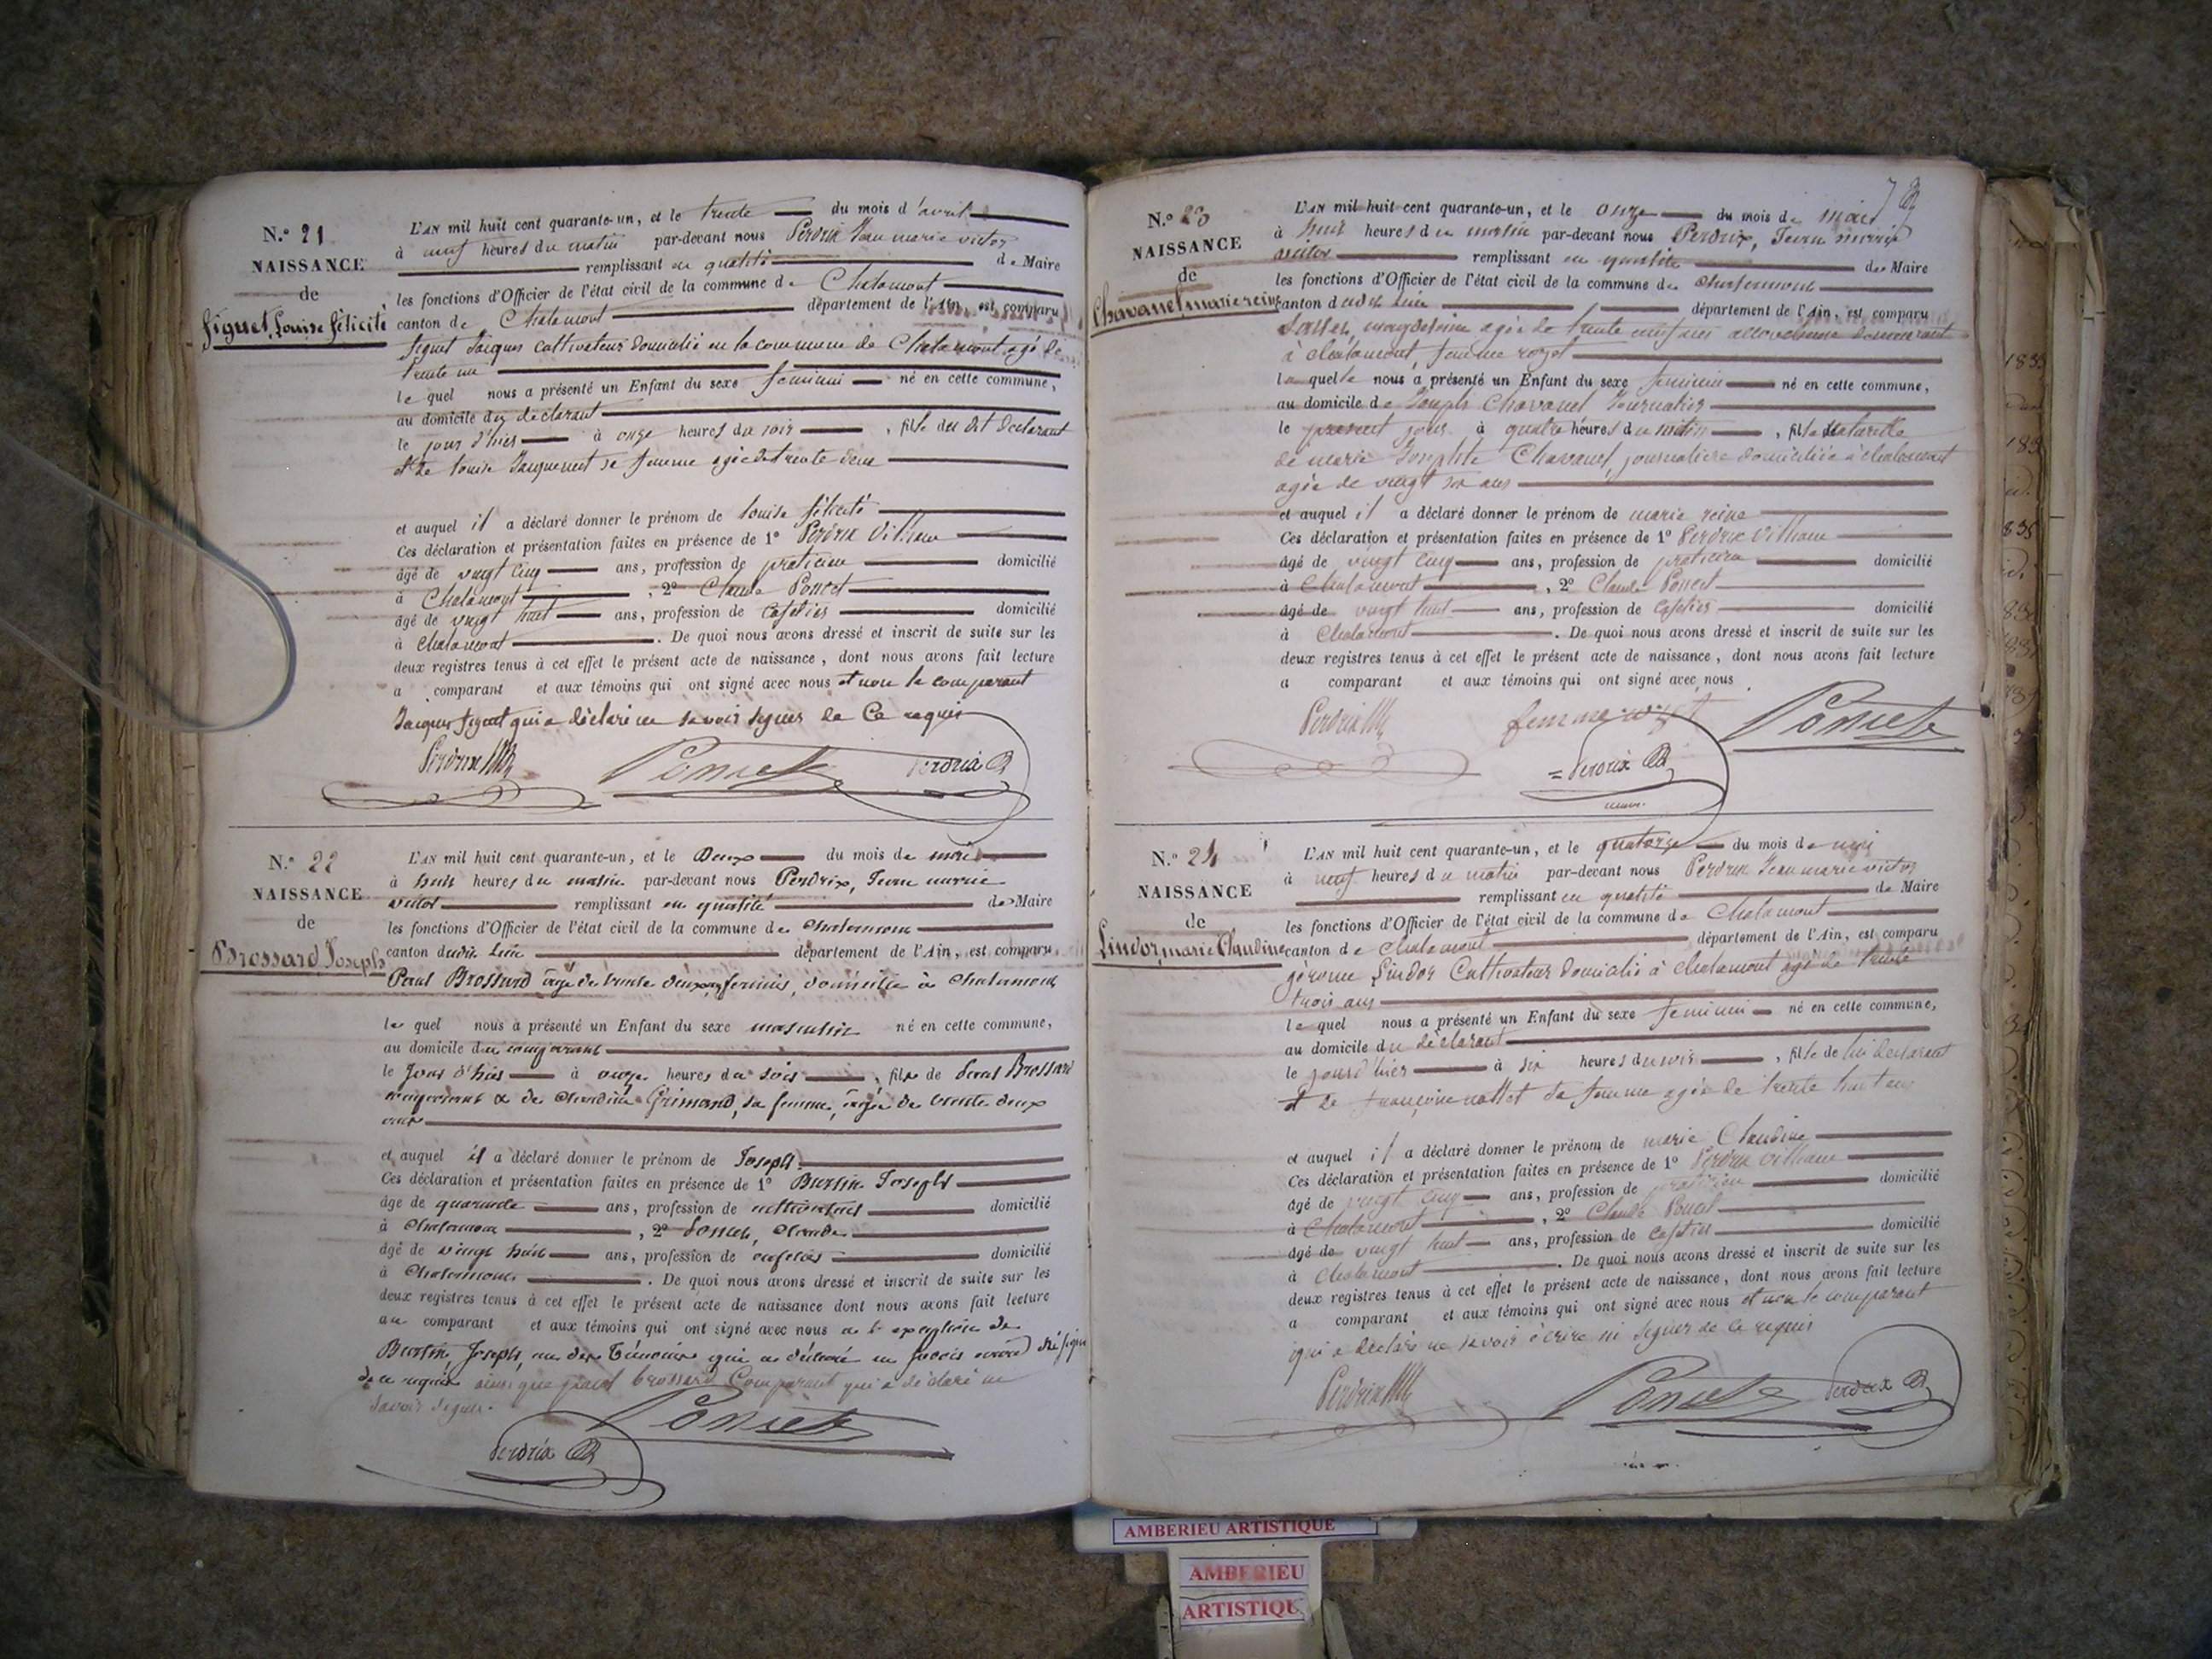 N.° 21
NAISSANCE
de
figuet, Louise félicité
L'AN mil huit cent quarante-un, et le trente du mois d'avril
à neuf heures du matin par-devant nous Perdrix Jean marie victor
remplissant en qualité de Maire
les fonctions d'Officier de l'état civil de la commune de Chalamont
canton de Chalamont département de l'Ain, est comparu
figuet Jacques cultivateur domicilié en la commune de Chalamont agé de
trente un
le quel nous a présenté un Enfant du sexe feminin né en cette commune,
au domicile du declarant
le jour d'hier à onze heures du soir, fille du dit declarant
et de Louise sa femme agée de trente deux
et auquel il a déclaré donner le prénom de Louise félicité
Ces déclaration et présentation faites en présence de 1° Perdrix
âgé de vingt cinq ans, profession de praticien domicilié
à Chalamont, 2° Claude Poncet
âgé de vingt huit ans, profession de cafetier domicilié
à Chalamont. De quoi nous avons dressé et inscrit de suite sur les
deux registres tenus à cet effet le présent acte de naissance, dont nous avons fait lecture
a comparant et aux témoins qui ont signé avec nous et non le comparant
Jacques figuet qui a déclaré ne savoir signer de Ce requis
Perdrix
Poncet
Perdrix
N.° 22
NAISSANCE
de
Brossard Joseph
L'AN mil huit cent quarante-un, et le Deux du mois de mai
à huit heures du matin par-devant nous Perdrix, Jean marie
victor remplissant en qualité de Maire
les fonctions d'Officier de l'état civil de la commune de Chalamont
canton dudit lieu département de l'Ain, est comparu
Paul Brossard âgé de trente deux fermier, domicilié à Chalamont
le quel nous a présenté un Enfant du sexe masculin né en cette commune,
au domicile du comparant
le Jour d'hier à onze heures du soir, fils de Paul Brossard
comparant & de Claudine Grimand, sa femme, âgée de trente deux
ans
et auquel il a déclaré donner le prénom de Joseph
Ces déclaration et présentation faites en présence de 1° Burtin Joseph
âgé de quarante ans, profession de cultivateur domicilié
à Chalamont, 2° Poncet, Claude
âgé de vingt huit ans, profession de cafetier domicilié
à Chalamont. De quoi nous avons dressé et inscrit de suite sur les
deux registres tenus à cet effet le présent acte de naissance dont nous avons fait lecture
au comparant et aux témoins qui ont signé avec nous à l'exception de
Burtin, Joseph, un des témoins qui a déclaré ne savoir écrire ni signer
de ce requis ainsi que paul brossard Comparant qui a déclaré ne
savoir signer.
Poncet
Perdrix
N.° 23
NAISSANCE
de
Chavanel marie reine
L'AN mil huit cent quarante-un, et le onze du mois de mai
à huit heures du matin par-devant nous Perdrix, Jean marie
victor remplissant en qualité de Maire
les fonctions d'Officier de l'état civil de la commune de Chalamont
canton dudit lieu département de l'Ain, est comparu
magdeleine agée de trente ans accoucheuse demeurant
à chalamont, femme rozet
la quelle nous a présenté un Enfant du sexe feminin né en cette commune,
au domicile de Joseph Chavanel Journalier
le present jour à quatre heures du matin, fille Naturelle
de marie Josephte Chavanel, journaliere domiciliée à chalamont
agée de vingt six ans
et auquel il a déclaré donner le prénom de marie reine
Ces déclaration et présentation faites en présence de 1° Perdrix
âgé de vingt cinq ans, profession de praticien domicilié
à Chalamont, 2° Claude Poncet
âgé de vingt huit ans, profession de cafetier domicilié
à Chalamont. De quoi nous avons dressé et inscrit de suite sur les
deux registres tenus à cet effet le présent acte de naissance, dont nous avons fait lecture
a comparant et aux témoins qui ont signé avec nous
Perdrix
femme rozet
Poncet
Perdrix
N.° 24
NAISSANCE
de
Lindor, marie Claudine
L'AN mil huit cent quarante-un, et le quatorze du mois de mai
à neuf heures du matin par-devant nous Perdrix Jean marie victor
remplissant en qualité de Maire
les fonctions d'Officier de l'état civil de la commune de Chalamont
canton de Chalamont département de l'Ain, est comparu
gérome Lindor Cultivateur domicilié à chalamont agé de trente
trois ans
le quel nous a présenté un Enfant du sexe feminin né en cette commune,
au domicile du déclarant
le jourd'hier à six heures du soir, fille de lui declarant
et de françoise sa femme agée de trente huit ans
et auquel il a déclaré donner le prénom de marie Claudine
Ces déclaration et présentation faites en présence de 1° Perdrix
âgé de vingt cinq ans, profession de praticien domicilié
à Chalamont, 2° Claude Poncet
âgé de vingt huit ans, profession de cafetier domicilié
à Chalamont. De quoi nous avons dressé et inscrit de suite sur les
deux registres tenus à cet effet le présent acte de naissance, dont nous avons fait lecture
a comparant et aux témoins qui ont signé avec nous et non le comparant
qui a declaré ne savoir écrire ni signer de ce requis
Perdrix
Poncet
Perdrix
AMBERIEU ARTISTIQUE
AMBERIEU
ARTISTIQUE